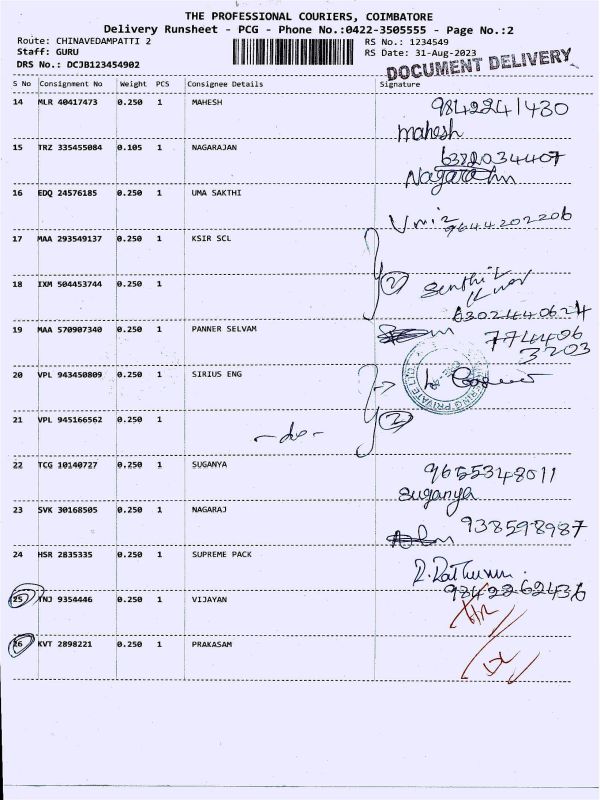 THE PROFESSIONAL COURIERS, COIMBATORE
Delivery Runsheet - PCG - Phone No.:0422-3505555 - Page No.:2
Route: CHINAVEDAMPATTI 2 RS No.: 1234549
Staff: GURU RS Date: 31-Aug-2023
DRS No.: DCJB123454902
DOCUMENT DELIVERY
S No Consignment No Weight PCS Consignee Details Signature
14 MLR 40417473 0.250 1 MAHESH 9842241430
mahesh
15 TRZ 335455084 0.105 1 NAGARAJAN 6382034407
16 EDQ 24576185 0.250 1 UMA SAKTHI
9644202206
17 MAA 293549137 0.250 1 KSIR SCL
18 IXM 504453744 0.250 1 2 Senthil
6302440624
19 MAA 570907340 0.250 1 PANNER SELVAM 774406
3203
20 VPL 943450809 0.250 1 SIRIUS ENG
21 VPL 945166562 0.250 1 -do- 2
22 TCG 10140727 0.250 1 SUGANYA 9655348011
suganya
23 SVK 30168505 0.250 1 NAGARAJ 938598987
24 HSR 2835335 0.250 1 SUPREME PACK
9842262436
25 TNJ 9354446 0.250 1 VIJAYAN
26 KVT 2898221 0.250 1 PRAKASAM